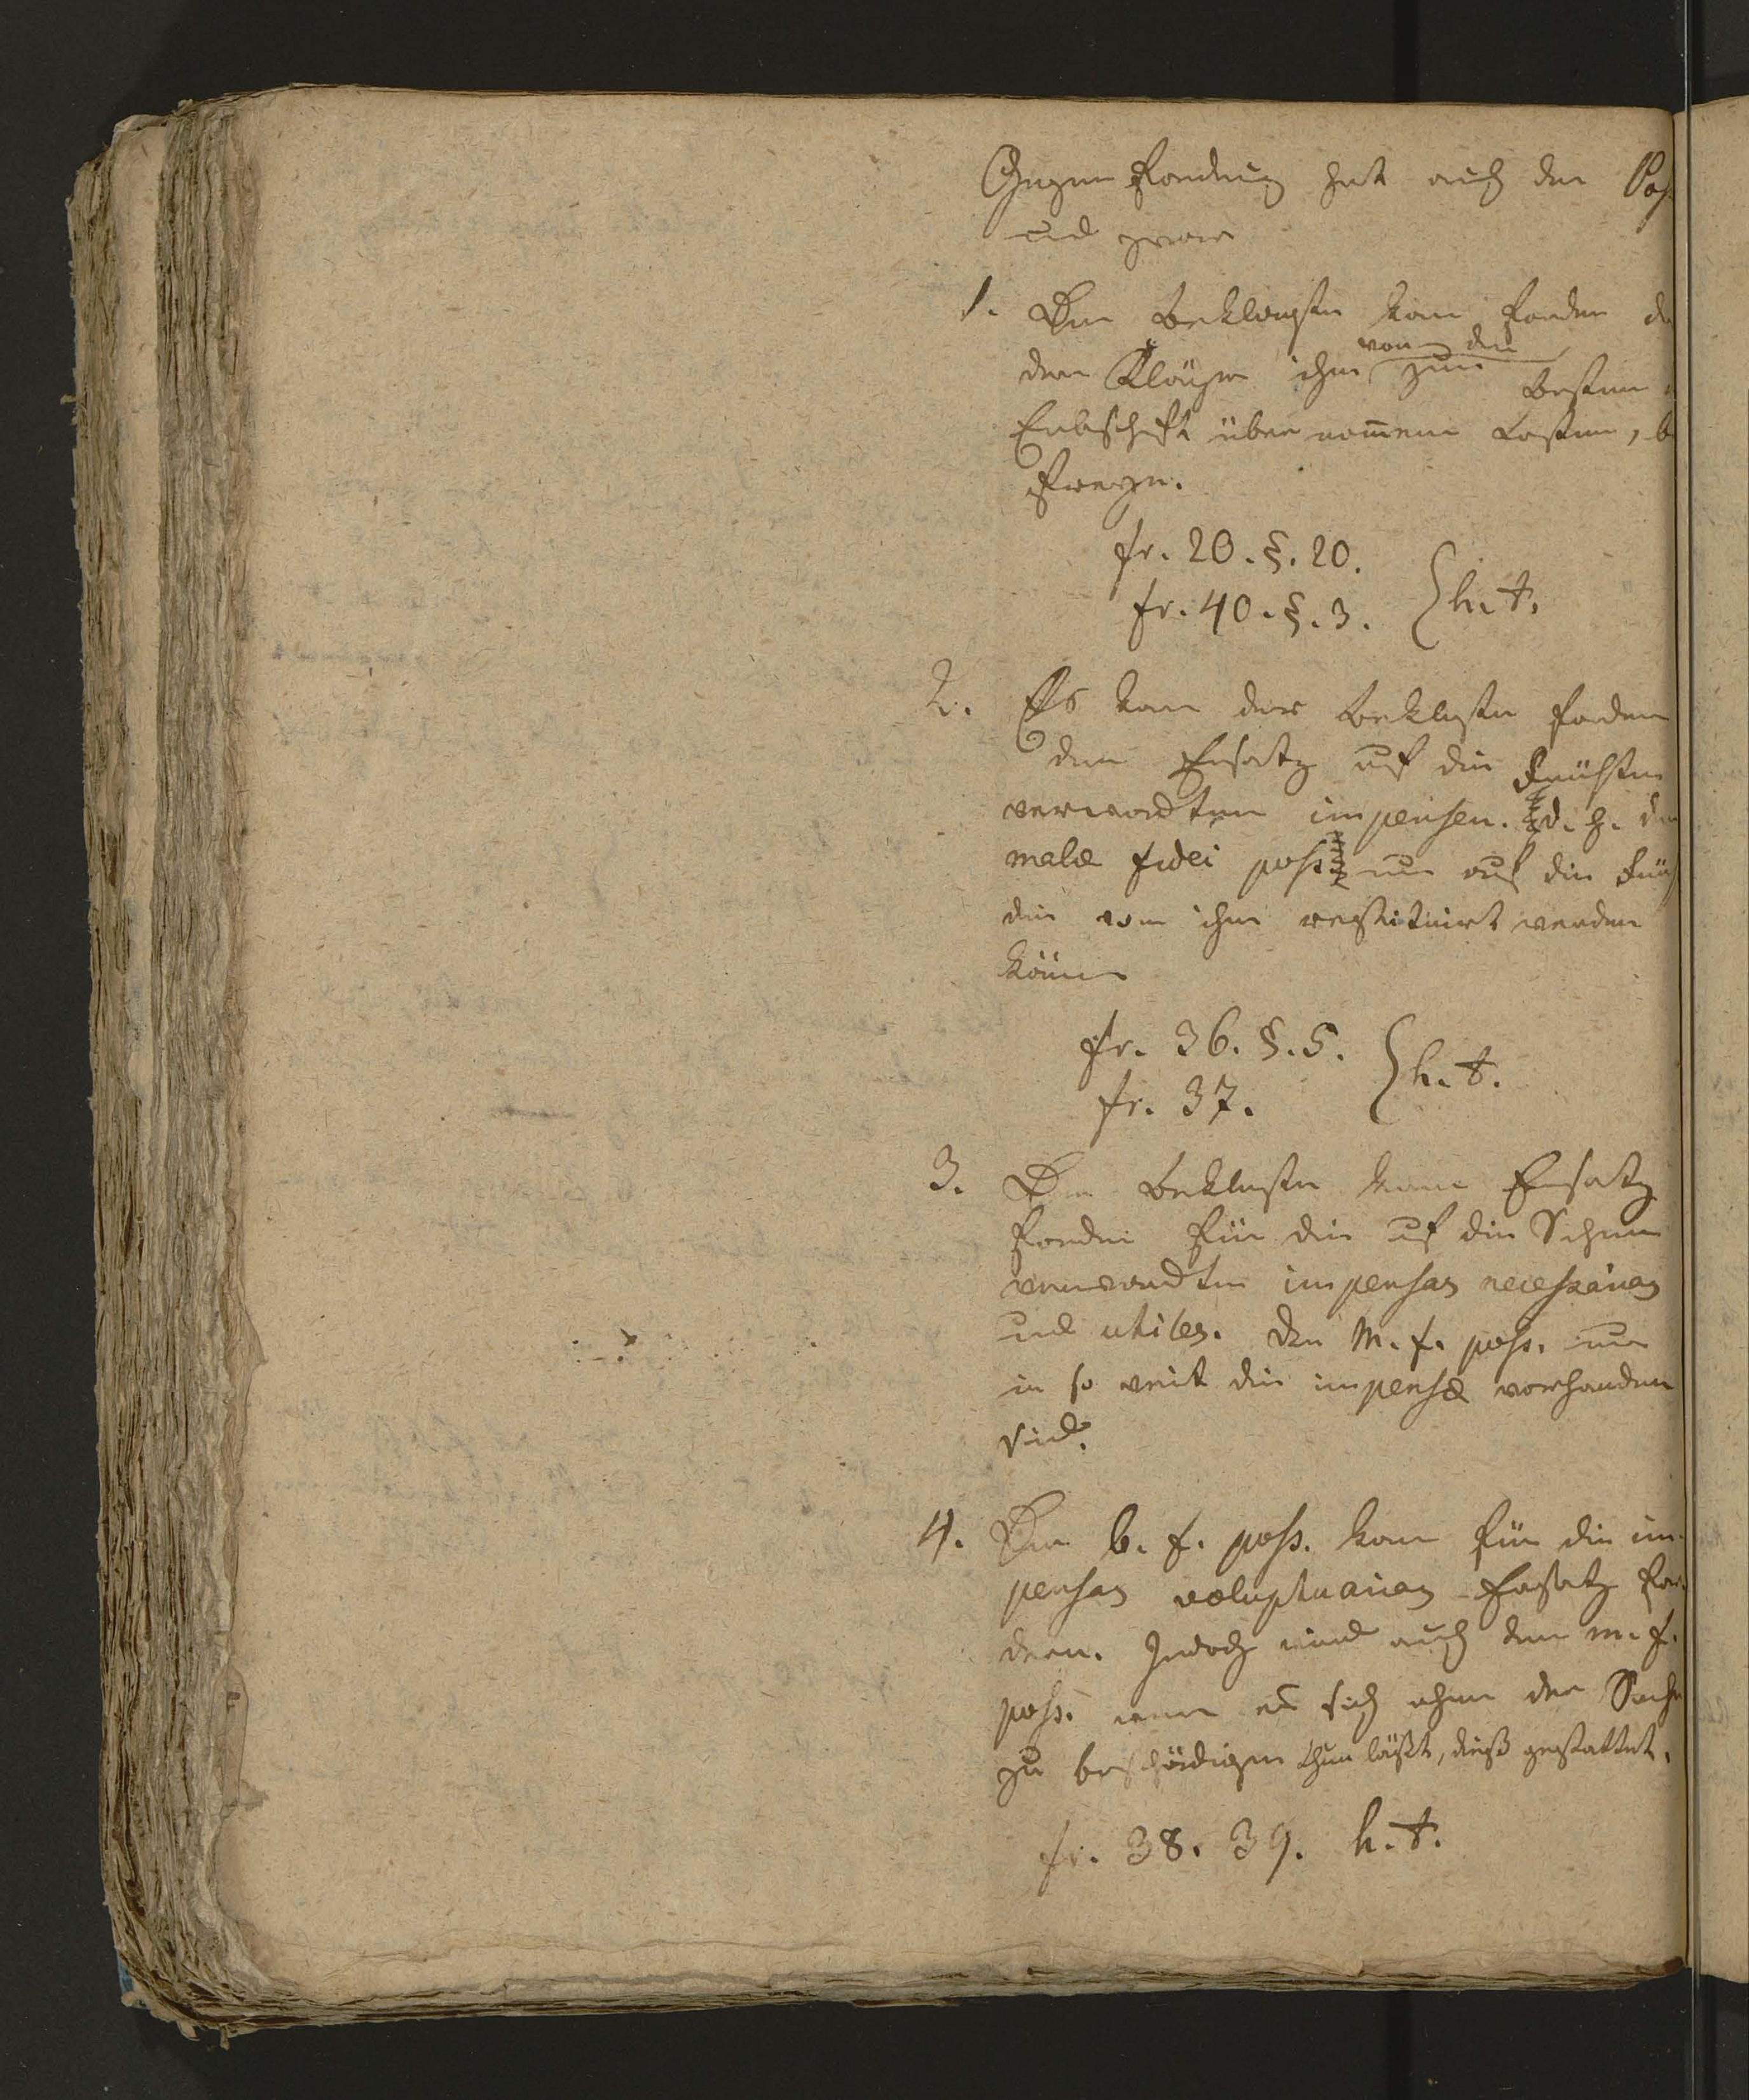 Gegen Forderung hat auch der Pos
und zwar
1. Der Beklagte kann fordern d
von den
dem Kläger ihm zum Besten
Erbschaft übernommene Lasten, b
fr. 20. §. 20.
fr. 40. §. 3. } h. t.
2. Es kan der Beklagte fordern
den Ersatz auf die Früchte
verwandten impensen. d. h. d
malæ fidei poss. nur auf die Früch
die von ihm restituirt werden
könen
fr. 36. §. 5.
fr. 37. } h. t.
3. Der Beklagte kann Ersatz
fordern für die auf die Sachen
verwandten impensas necessarias
und utiles. Der m. f. poss. nur
in so weit die impensæ vorhanden
sind.
4. Der b. f. poss. kan für die im-
pensas voluptuarias Ersatz for-
dern. Jedoch wird auch dem m. f.
poss. wenn es sich ohne der Sache
zu beschädigen thun läßt, dieß gestattet.
fr. 38. 39. h. t.